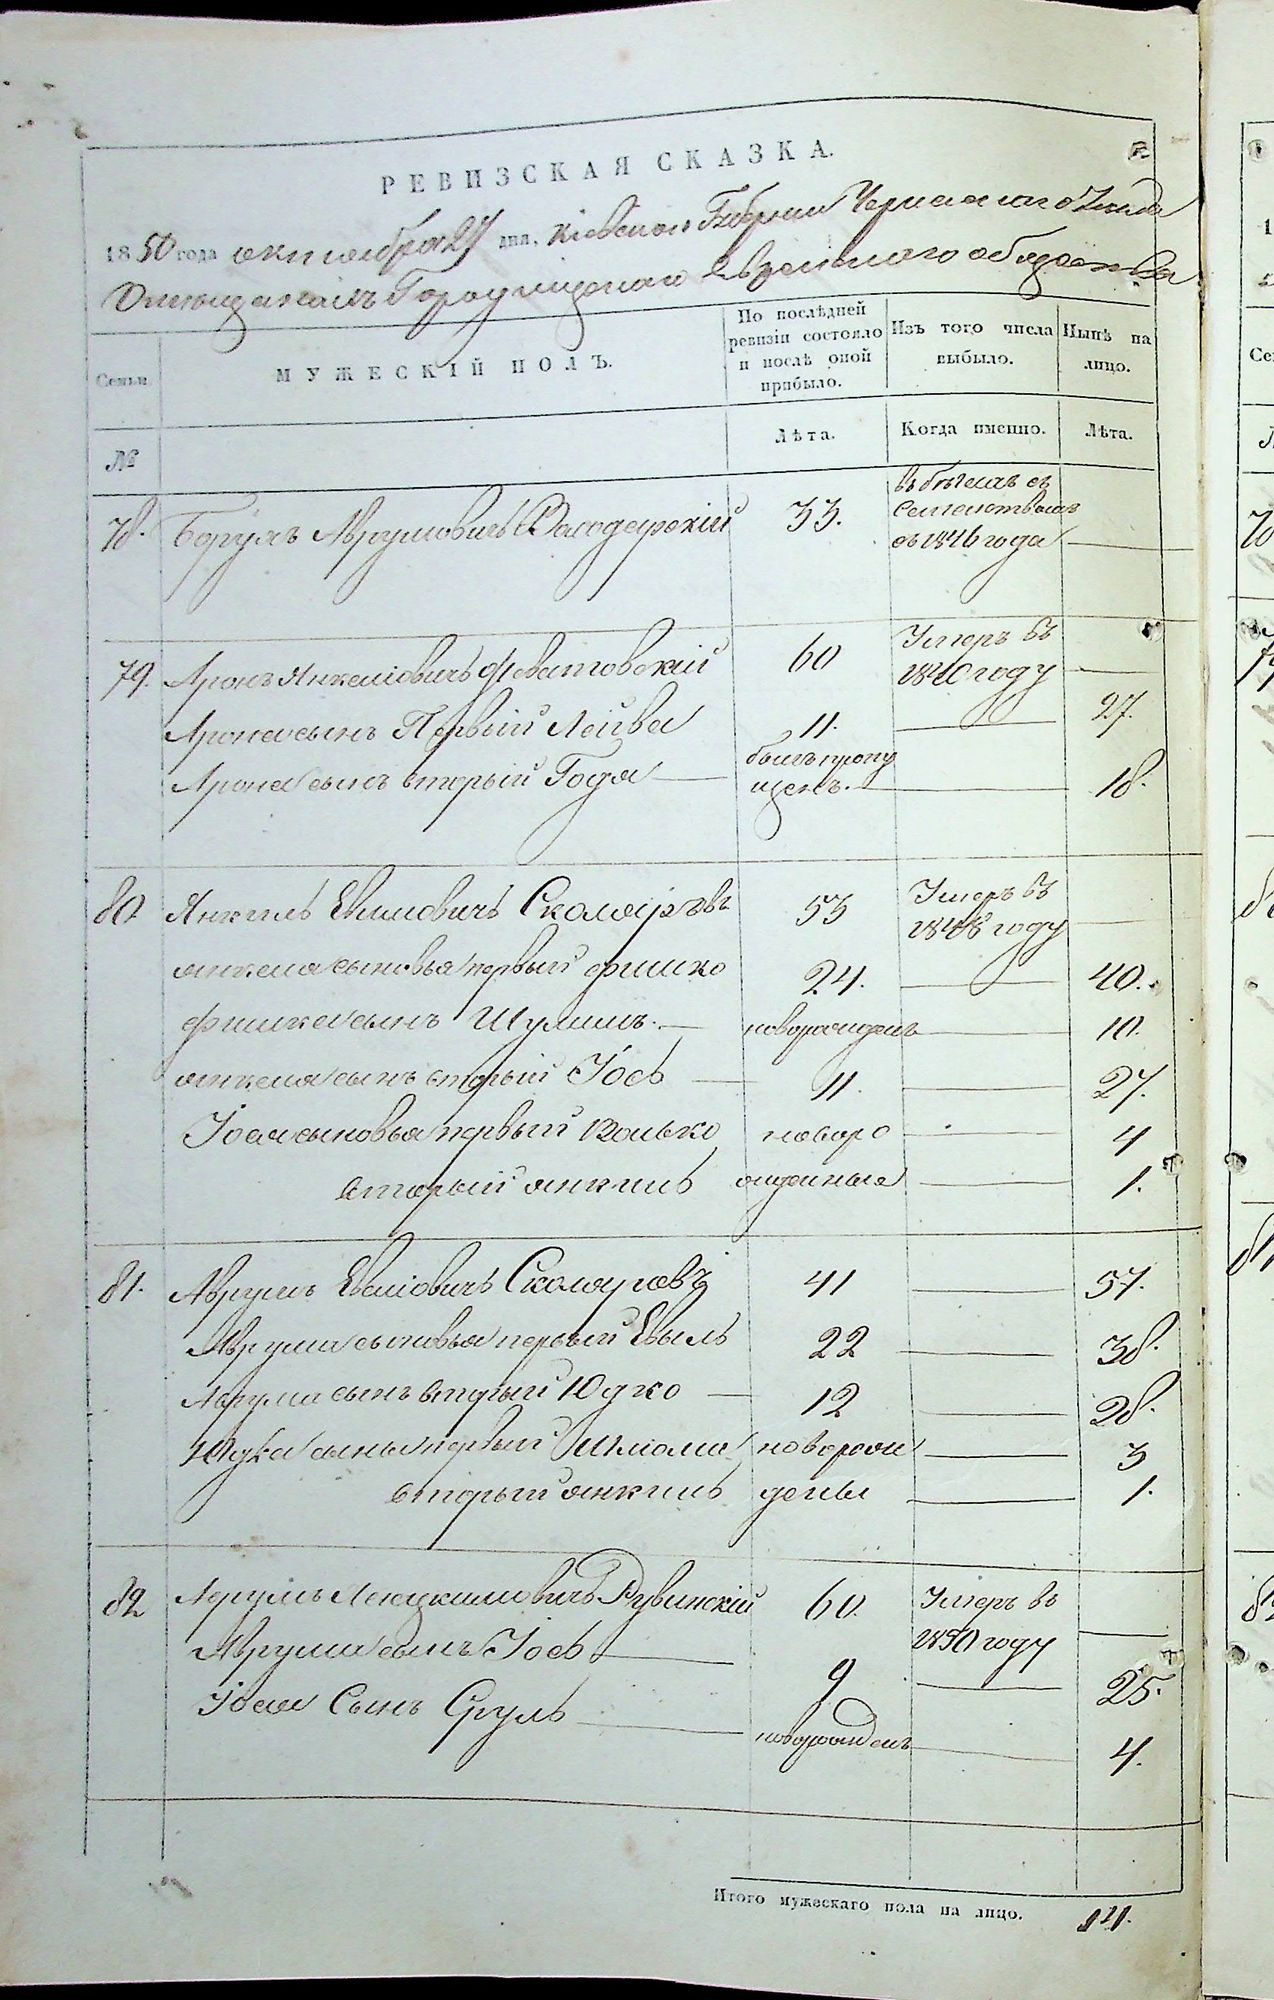 РЕВИЗСКАЯ СКАЗКА.
1850 года октября 27 дня, Кіевской Губерніи Черкаскаго Уезда
О мещанахъ Городищскаго Еврейскаго общества
Семьи. МУЖЕСКІЙ ПОЛЪ. По послѣдней ревизіи состояло и послѣ оной прибыло. Изъ того числа выбыло. Нынѣ на лицо.
№ Лѣта. Когда именно. Лѣта.
78. Борухъ Аврумовичъ 33. въ бегахъ съ
семействомъ
съ 1846 года
79. Аронъ Янкеліовичъ 60 Умеръ въ
1840 году
Арона сынъ Первый Лейба 11. 27.
Арона сынъ вторый Годя былъ пропу
щенъ. 18.
80. Янкель Евлиовичъ 53 Умеръ въ
1848 году
янкеля сыновья первый Фишко 24. 40.
Фишка сынъ Шулимъ. новорожденъ 10.
янкеля сынъ вторый Іось 11. 27.
Іося сыновья первый Волько новоро 4
вторый янкель жденные 1.
81. Аврумъ Евеліовичъ 41 57.
Аврума сыновья первый Евель 22 38.
Аврума сынъ вторый Юдко 12 28.
Юдка сыны первый Шліома новорож 3
вторый янкель дены 1.
82 Аврумъ Рувинскій 60. Умеръ въ
1850 году
Аврума сынъ Іось 9 25.
Іося Сынъ Сруль новорожденъ 4.
Итого мужескаго пола на лицо. 14.